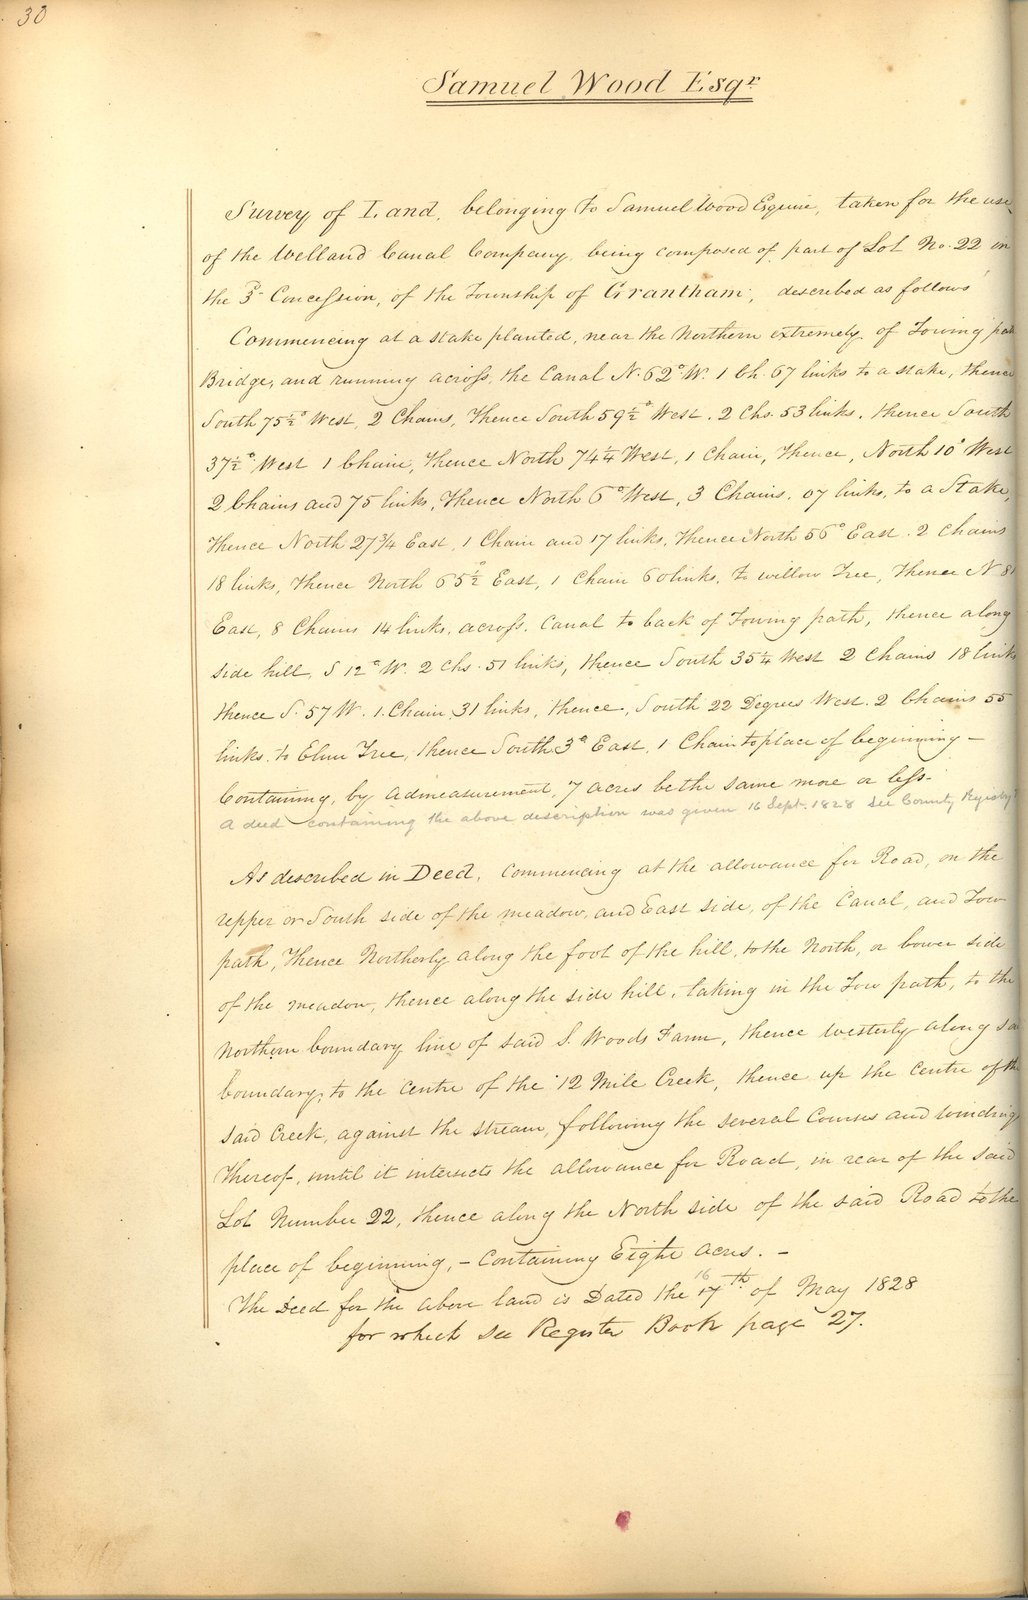 30
Samuel Wood Esqr
Survey of Land, belonging to Samuel Wood Esquire, taken for the use
of the Welland Canal Company, being composed of part of Lot No. 22 in
the 3d Concession, of the Township of Grantham, described as follows
Commencing at a stake planted, near the Northern extremely of Towing path
Bridge, and running across, the Canal N. 62° W. 1 Ch. 67 links to a stake, thence
South 75½° West, 2 Chains, Thence South 59½° West. 2 Chs. 53 links. thence South
37½° West 1 Chain, thence North 74¼ West, 1 Chain, Thence, North 10° West
2 Chains and 75 links, Thence North 6° West, 3 Chains. 07 links, to a Stake,
Thence North 27¾ East, 1 Chain and 17 links, Thence North 56° East. 2 Chains
18 links, Thence North 65½° East, 1 Chain 60 links. to willow Tree, Thence N 81
East, 8 Chains 14 links, across. Canal to back of Towing path, thence along
side hill, S 12° W. 2 Chs. 51 links, thence South 35¼ West 2 Chains 18 links
thence S. 57 W. 1. Chain 31 links, thence, South 22 Degrees West. 2 Chains 55
links. to Elm Tree, thence South 3° East, 1 Chain to place of beginning –
Containing, by admeasurement, 7 acres be the same more or less.
A deed containing the above description was given 16 Sept. 1828 see County Registry
As described in Deed. Commencing at the allowance for Road, on the
upper or South side of the meadow, and East side, of the Canal, and Tow
path, Thence Northerly along the foot of the hill, to the North, or lower side
of the meadow, thence along the side hill, taking in the Tow path, to the
Northern boundary line of said S. Woods Farm, thence Westerly along sa
boundary, to the centre of the 12 Mile Creek, thence up the centre of the
said Creek, against the stream, following the several Courses and windings
thereof, until it intersects the allowance for Road, in rear of the said
Lot Number 22, thence along the North side of the said Road to the
place of beginning, – Containing Eight acres. –
16
The Deed for the above land is Dated the 17th of May 1828
for which see Register Book page 27.